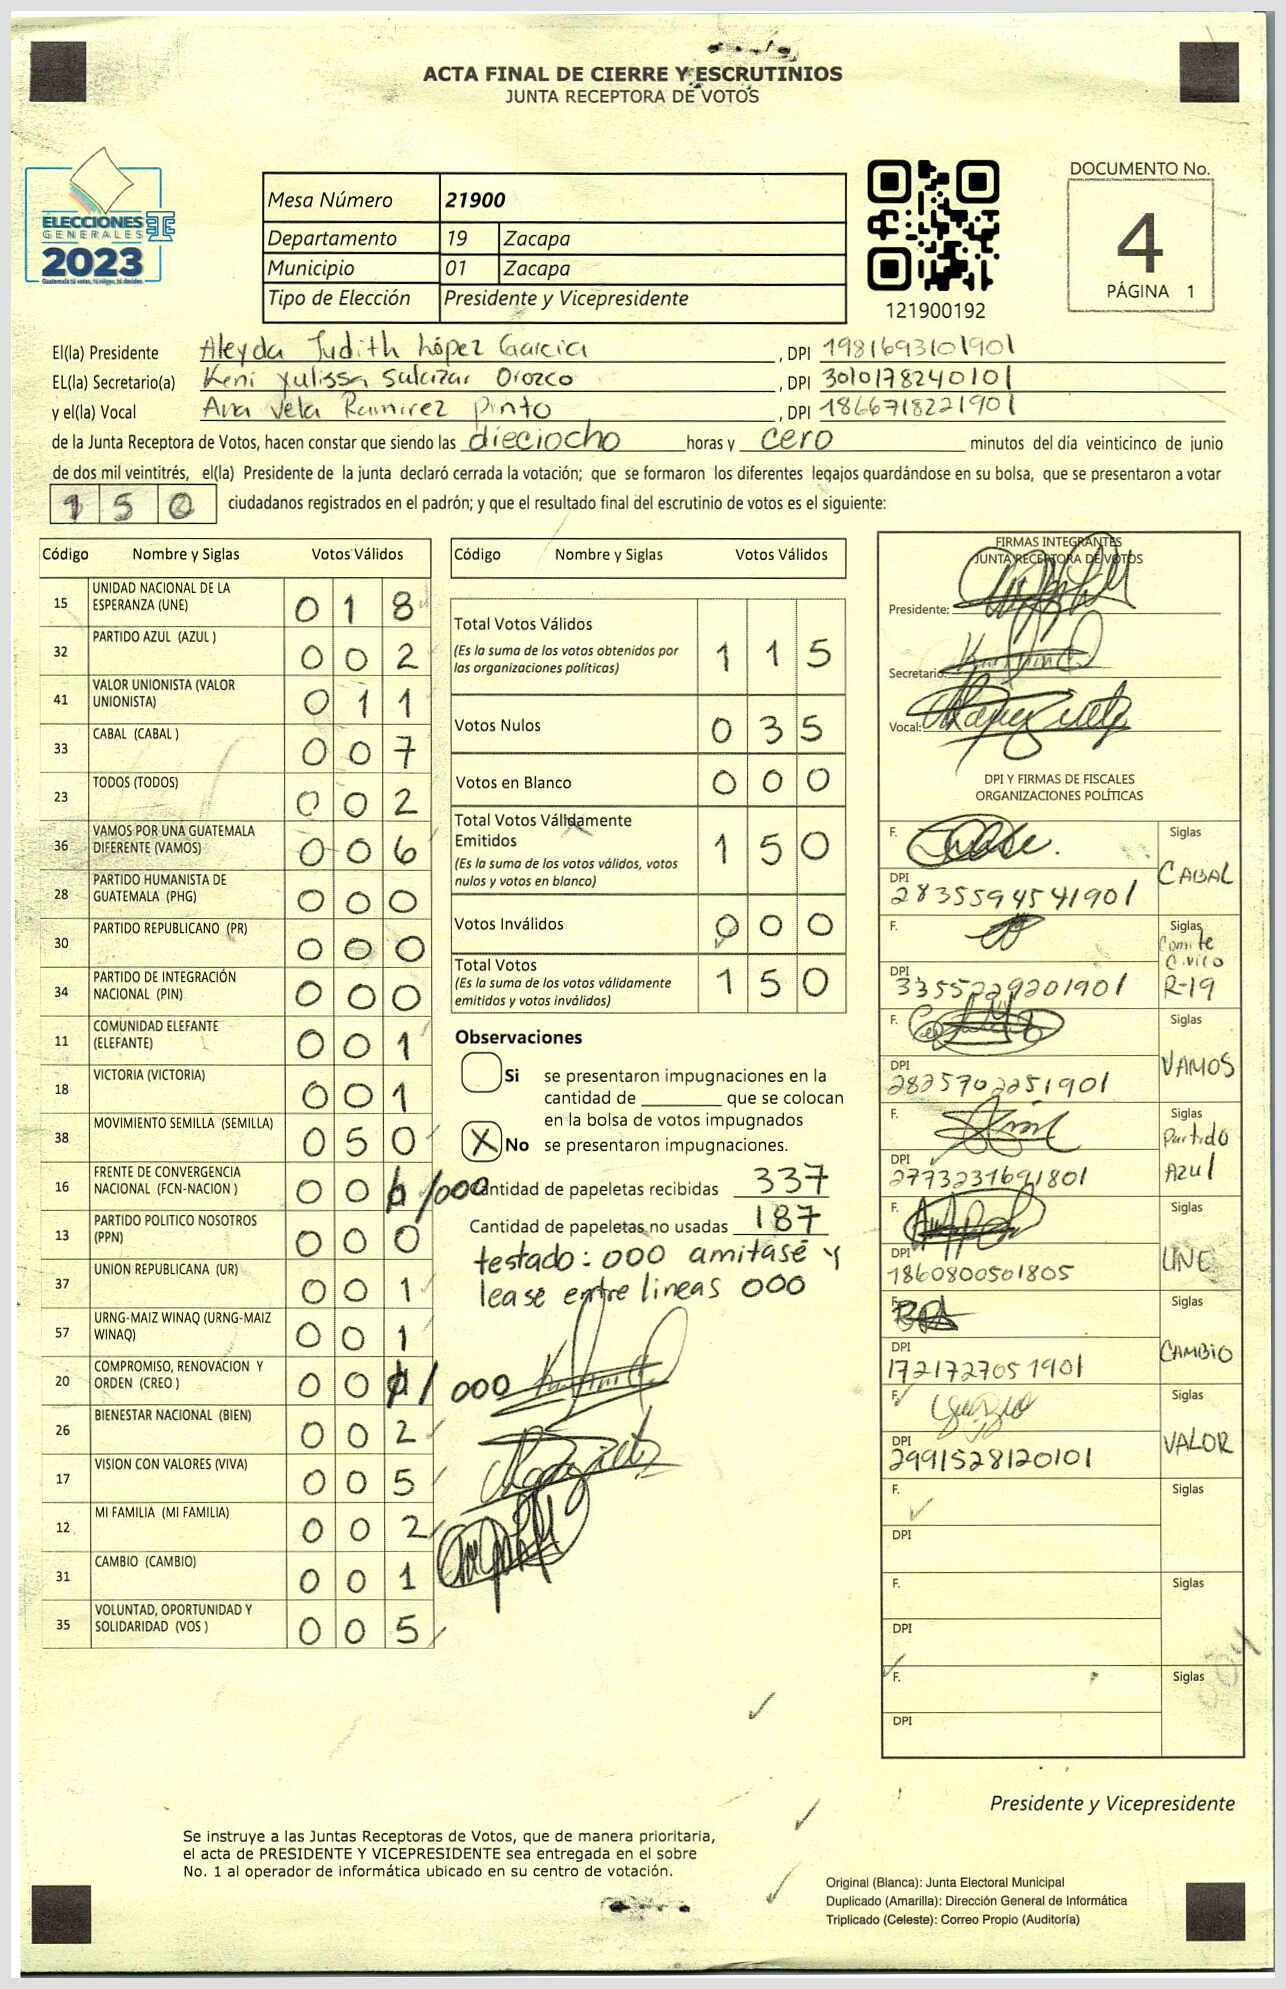 ACTA FINAL DE CIERRE Y ESCRUTINIOS
JUNTA RECEPTORA DE VOTOS
ELECCIONES
GENERALES
2023
Mesa Número 21900
Departamento 19 Zacapa
Municipio 01 Zacapa
Tipo de Elección Presidente y Vicepresidente
121900192
DOCUMENTO No.
4
PÁGINA 1
El(la) Presidente Aleyda Judith López Garcia , DPI 1981693101901
EL(la) Secretario(a) Keni Yulissa Salazar Orozco , DPI 3010178240101
y el(la) Vocal Ana Vela Ramirez Pinto , DPI 1866718221901
de la Junta Receptora de Votos, hacen constar que siendo las dieciocho horas y cero minutos del día veinticinco de junio
de dos mil veintitrés, el(la) Presidente de la junta declaró cerrada la votación; que se formaron los diferentes legajos guardándose en su bolsa, que se presentaron a votar
150 ciudadanos registrados en el padrón; y que el resultado final del escrutinio de votos es el siguiente:
Código Nombre y Siglas Votos Válidos
15 UNIDAD NACIONAL DE LA ESPERANZA (UNE) 018
32 PARTIDO AZUL (AZUL ) 002
41 VALOR UNIONISTA (VALOR UNIONISTA) 011
33 CABAL (CABAL ) 007
23 TODOS (TODOS) 002
36 VAMOS POR UNA GUATEMALA DIFERENTE (VAMOS) 006
28 PARTIDO HUMANISTA DE GUATEMALA (PHG) 000
30 PARTIDO REPUBLICANO (PR) 000
34 PARTIDO DE INTEGRACIÓN NACIONAL (PIN) 000
11 COMUNIDAD ELEFANTE (ELEFANTE) 001
18 VICTORIA (VICTORIA) 001
38 MOVIMIENTO SEMILLA (SEMILLA) 050
16 FRENTE DE CONVERGENCIA NACIONAL (FCN-NACION ) 00 /000
13 PARTIDO POLITICO NOSOTROS (PPN) 000
37 UNION REPUBLICANA (UR) 001
57 URNG-MAIZ WINAQ (URNG-MAIZ WINAQ) 001
20 COMPROMISO, RENOVACION Y ORDEN (CREO ) 00 / 000
26 BIENESTAR NACIONAL (BIEN) 002
17 VISION CON VALORES (VIVA) 005
12 MI FAMILIA (MI FAMILIA) 002
31 CAMBIO (CAMBIO) 001
35 VOLUNTAD, OPORTUNIDAD Y SOLIDARIDAD (VOS ) 005
Código Nombre y Siglas Votos Válidos
Total Votos Válidos 115
(Es la suma de los votos obtenidos por
las organizaciones políticas)
Votos Nulos 035
Votos en Blanco 000
Total Votos Válidamente
Emitidos 150
(Es la suma de los votos válidos, votos
nulos y votos en blanco)
Votos Inválidos 000
Total Votos 150
(Es la suma de los votos válidamente
emitidos y votos inválidos)
Observaciones
Si se presentaron impugnaciones en la
cantidad de ________ que se colocan
en la bolsa de votos impugnados
X No se presentaron impugnaciones.
Cantidad de papeletas recibidas 337
Cantidad de papeletas no usadas 187
testado: 000 amitase y
lease entre lineas 000
FIRMAS INTEGRANTES
JUNTA RECEPTORA DE VOTOS
Presidente:
Secretario:
Vocal:
DPI Y FIRMAS DE FISCALES
ORGANIZACIONES POLÍTICAS
F. Siglas CABAL
DPI 2835594541901
F. Siglas Comite Civico R-19
DPI 3355229201901
F. Siglas VAMOS
DPI 2825702251901
F. Siglas Partido Azul
DPI 2773231691801
F. Siglas UNE
DPI 1860800501805
F. Siglas CAMBIO
DPI 1721727051901
F. Siglas VALOR
DPI 2991528120101
F. Siglas
DPI
F. Siglas
DPI
F. Siglas
DPI
Presidente y Vicepresidente
Se instruye a las Juntas Receptoras de Votos, que de manera prioritaria,
el acta de PRESIDENTE Y VICEPRESIDENTE sea entregada en el sobre
No. 1 al operador de informática ubicado en su centro de votación.
Original (Blanca): Junta Electoral Municipal
Duplicado (Amarilla): Dirección General de Informática
Triplicado (Celeste): Correo Propio (Auditoría)